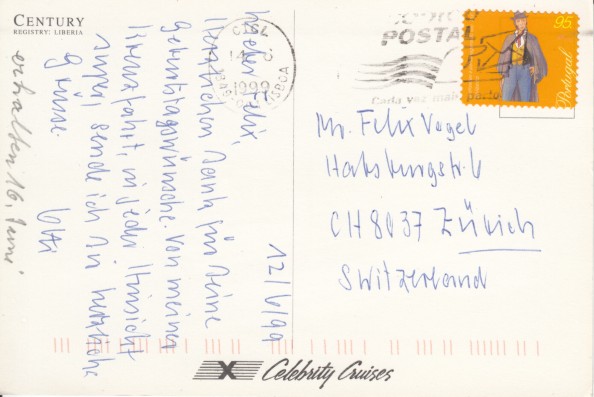 CENTURY
REGISTRY: LIBERIA
12/6/99
Lieber Felix,
Herzlichen Dank für Deine
Geburtstagswünsche. Von meiner
Kreuzfahrt, in jeder Hinsicht
super, sende ich Dir herzliche
Grüsse.
erhalten 16. Juni
POSTAL
Cada vez mais perto
1999
LISBOA
95.
Portugal
Mr. Felix Vogel
Habsburgstr. 6
CH 8037 Zürich
Switzerland
X Celebrity Cruises